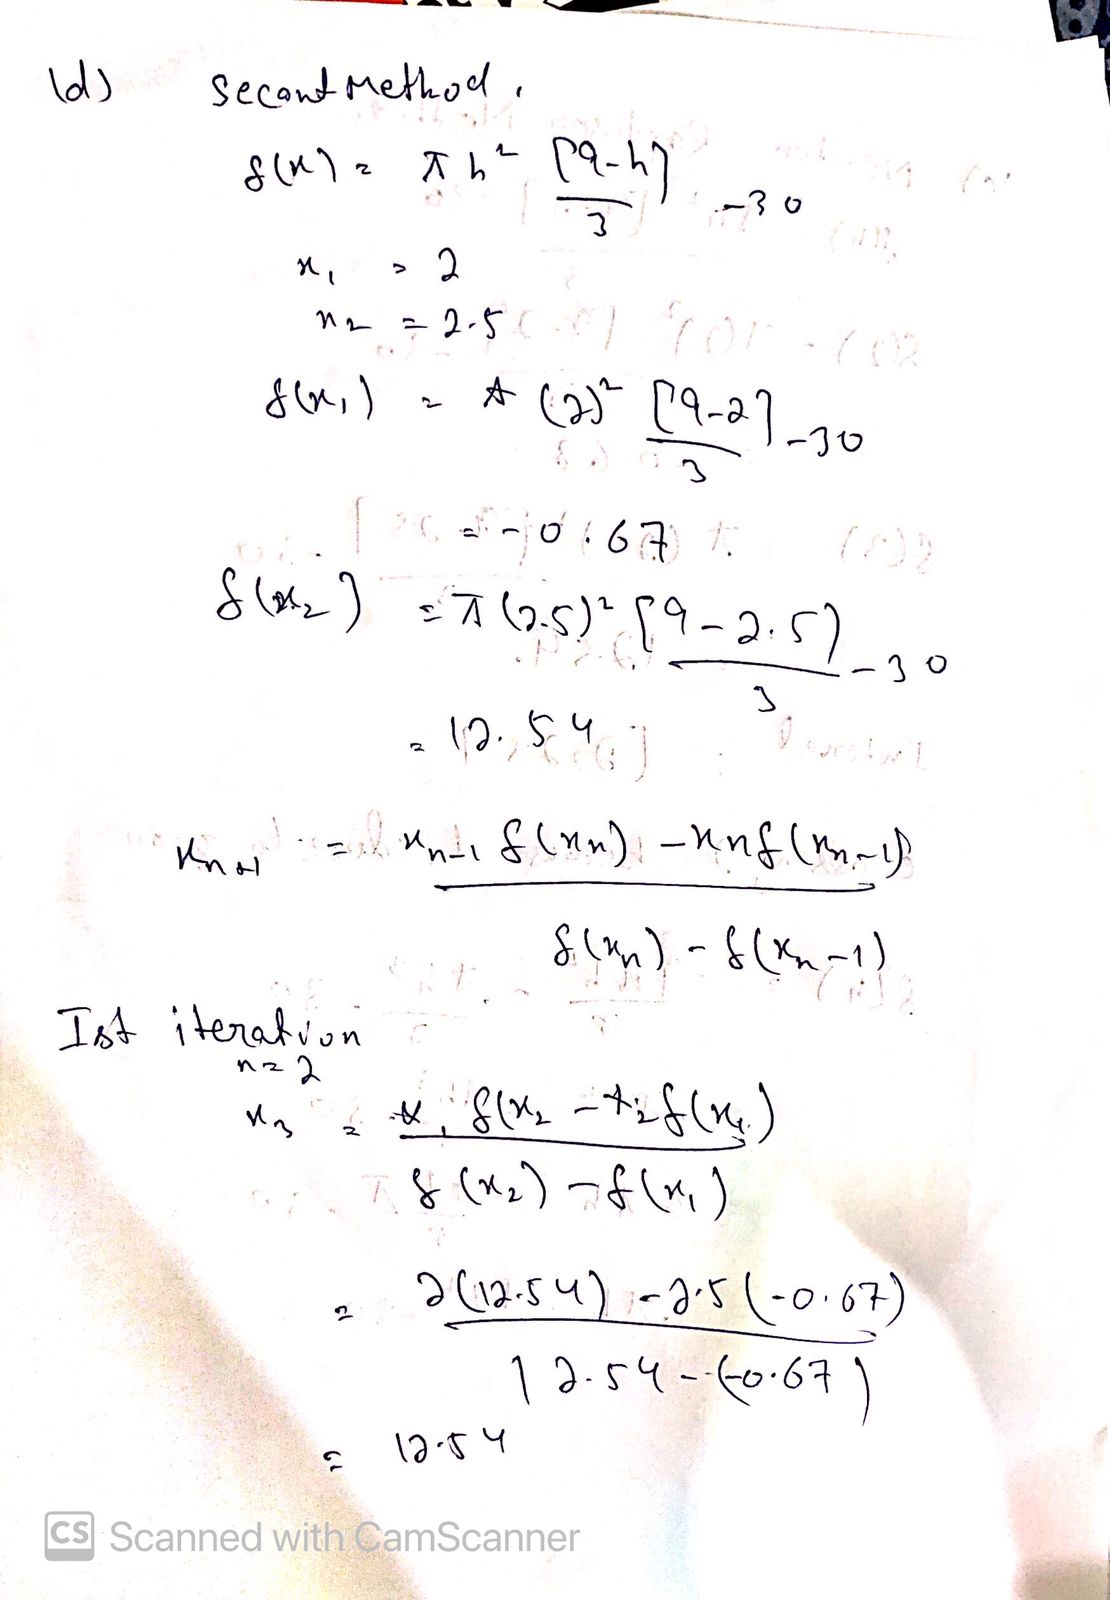 (d) Secant Method.
f(x) = π h² [9-h]/3 -30
x₁ = 2
x₂ = 2.5
f(x₁) = π (2)² [9-2]/3 -30
= -0.67
f(x₂) = π (2.5)² [9-2.5]/3 -30
= 12.54
xₙ₊₁ = xₙ₋₁ f(xₙ) - xₙ f(xₙ₋₁) / f(xₙ) - f(xₙ₋₁)
Ist iteration
n = 2
x₃ = x₁ f(x₂ - x₂ f(x₁) / f(x₂) - f(x₁)
= 2(12.54) - 2.5(-0.67) / 12.54 - (-0.67)
= 12.54
CS Scanned with CamScanner